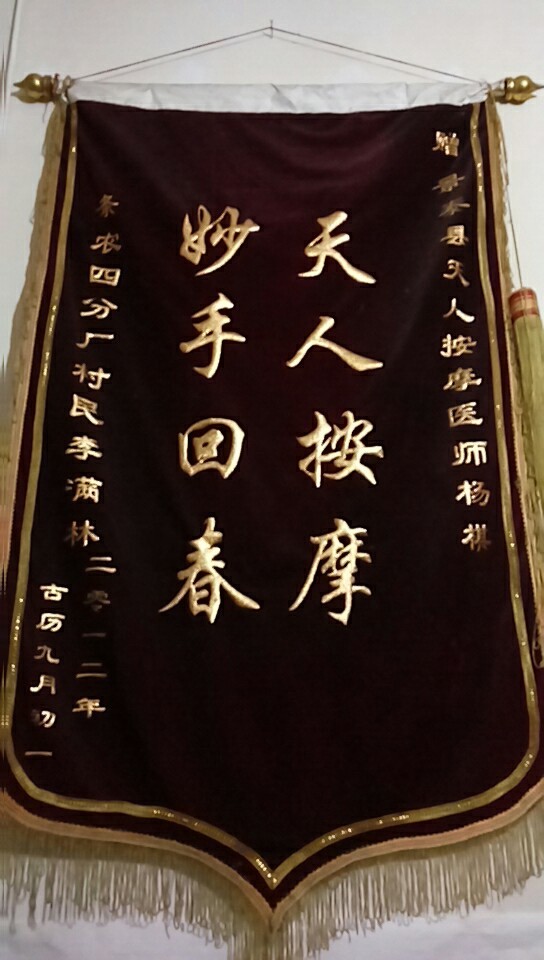 赠景泰县天人按摩医师杨祺
天人按摩
妙手回春
条农四分厂村民李满林二零一二年
古历九月初一